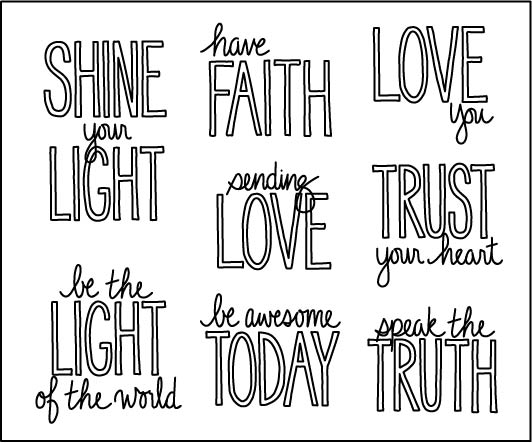 SHINE
your
LIGHT
have
FAITH
LOVE
you
sending
LOVE
TRUST
your heart
be the
LIGHT
of the world
be awesome
TODAY
speak the
TRUTH